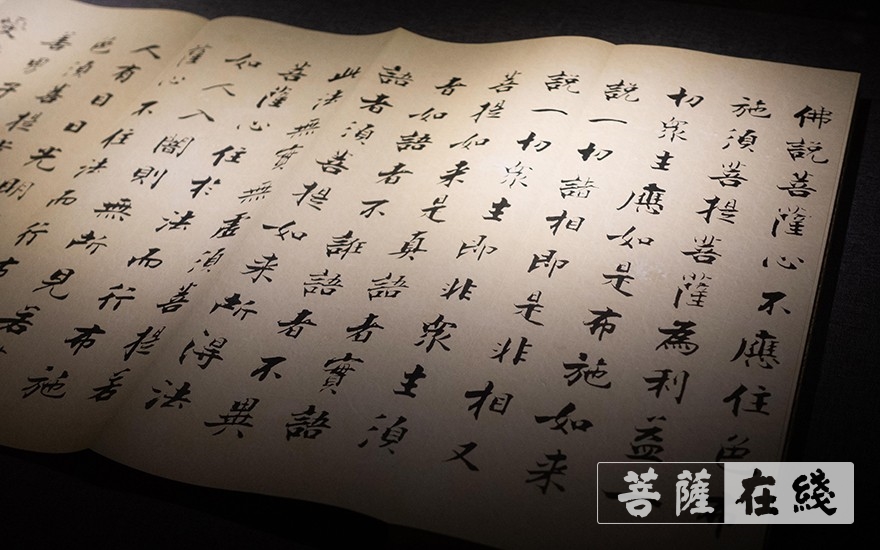 佛説菩薩心不應住色
施須菩提菩薩為利益一
切衆生應如是布施如来
説一切諸相即是非相又
説一切衆生即非衆生須
菩提如来是真語者實語
者如語者不誑語者不異
語者須菩提如来所得法
此法無實無虛須菩提若
菩薩心住於法而行布施
如人入闇則無所見若
薩心不住法而行
人有目日光明
色須菩提
善男子
菩薩在綫